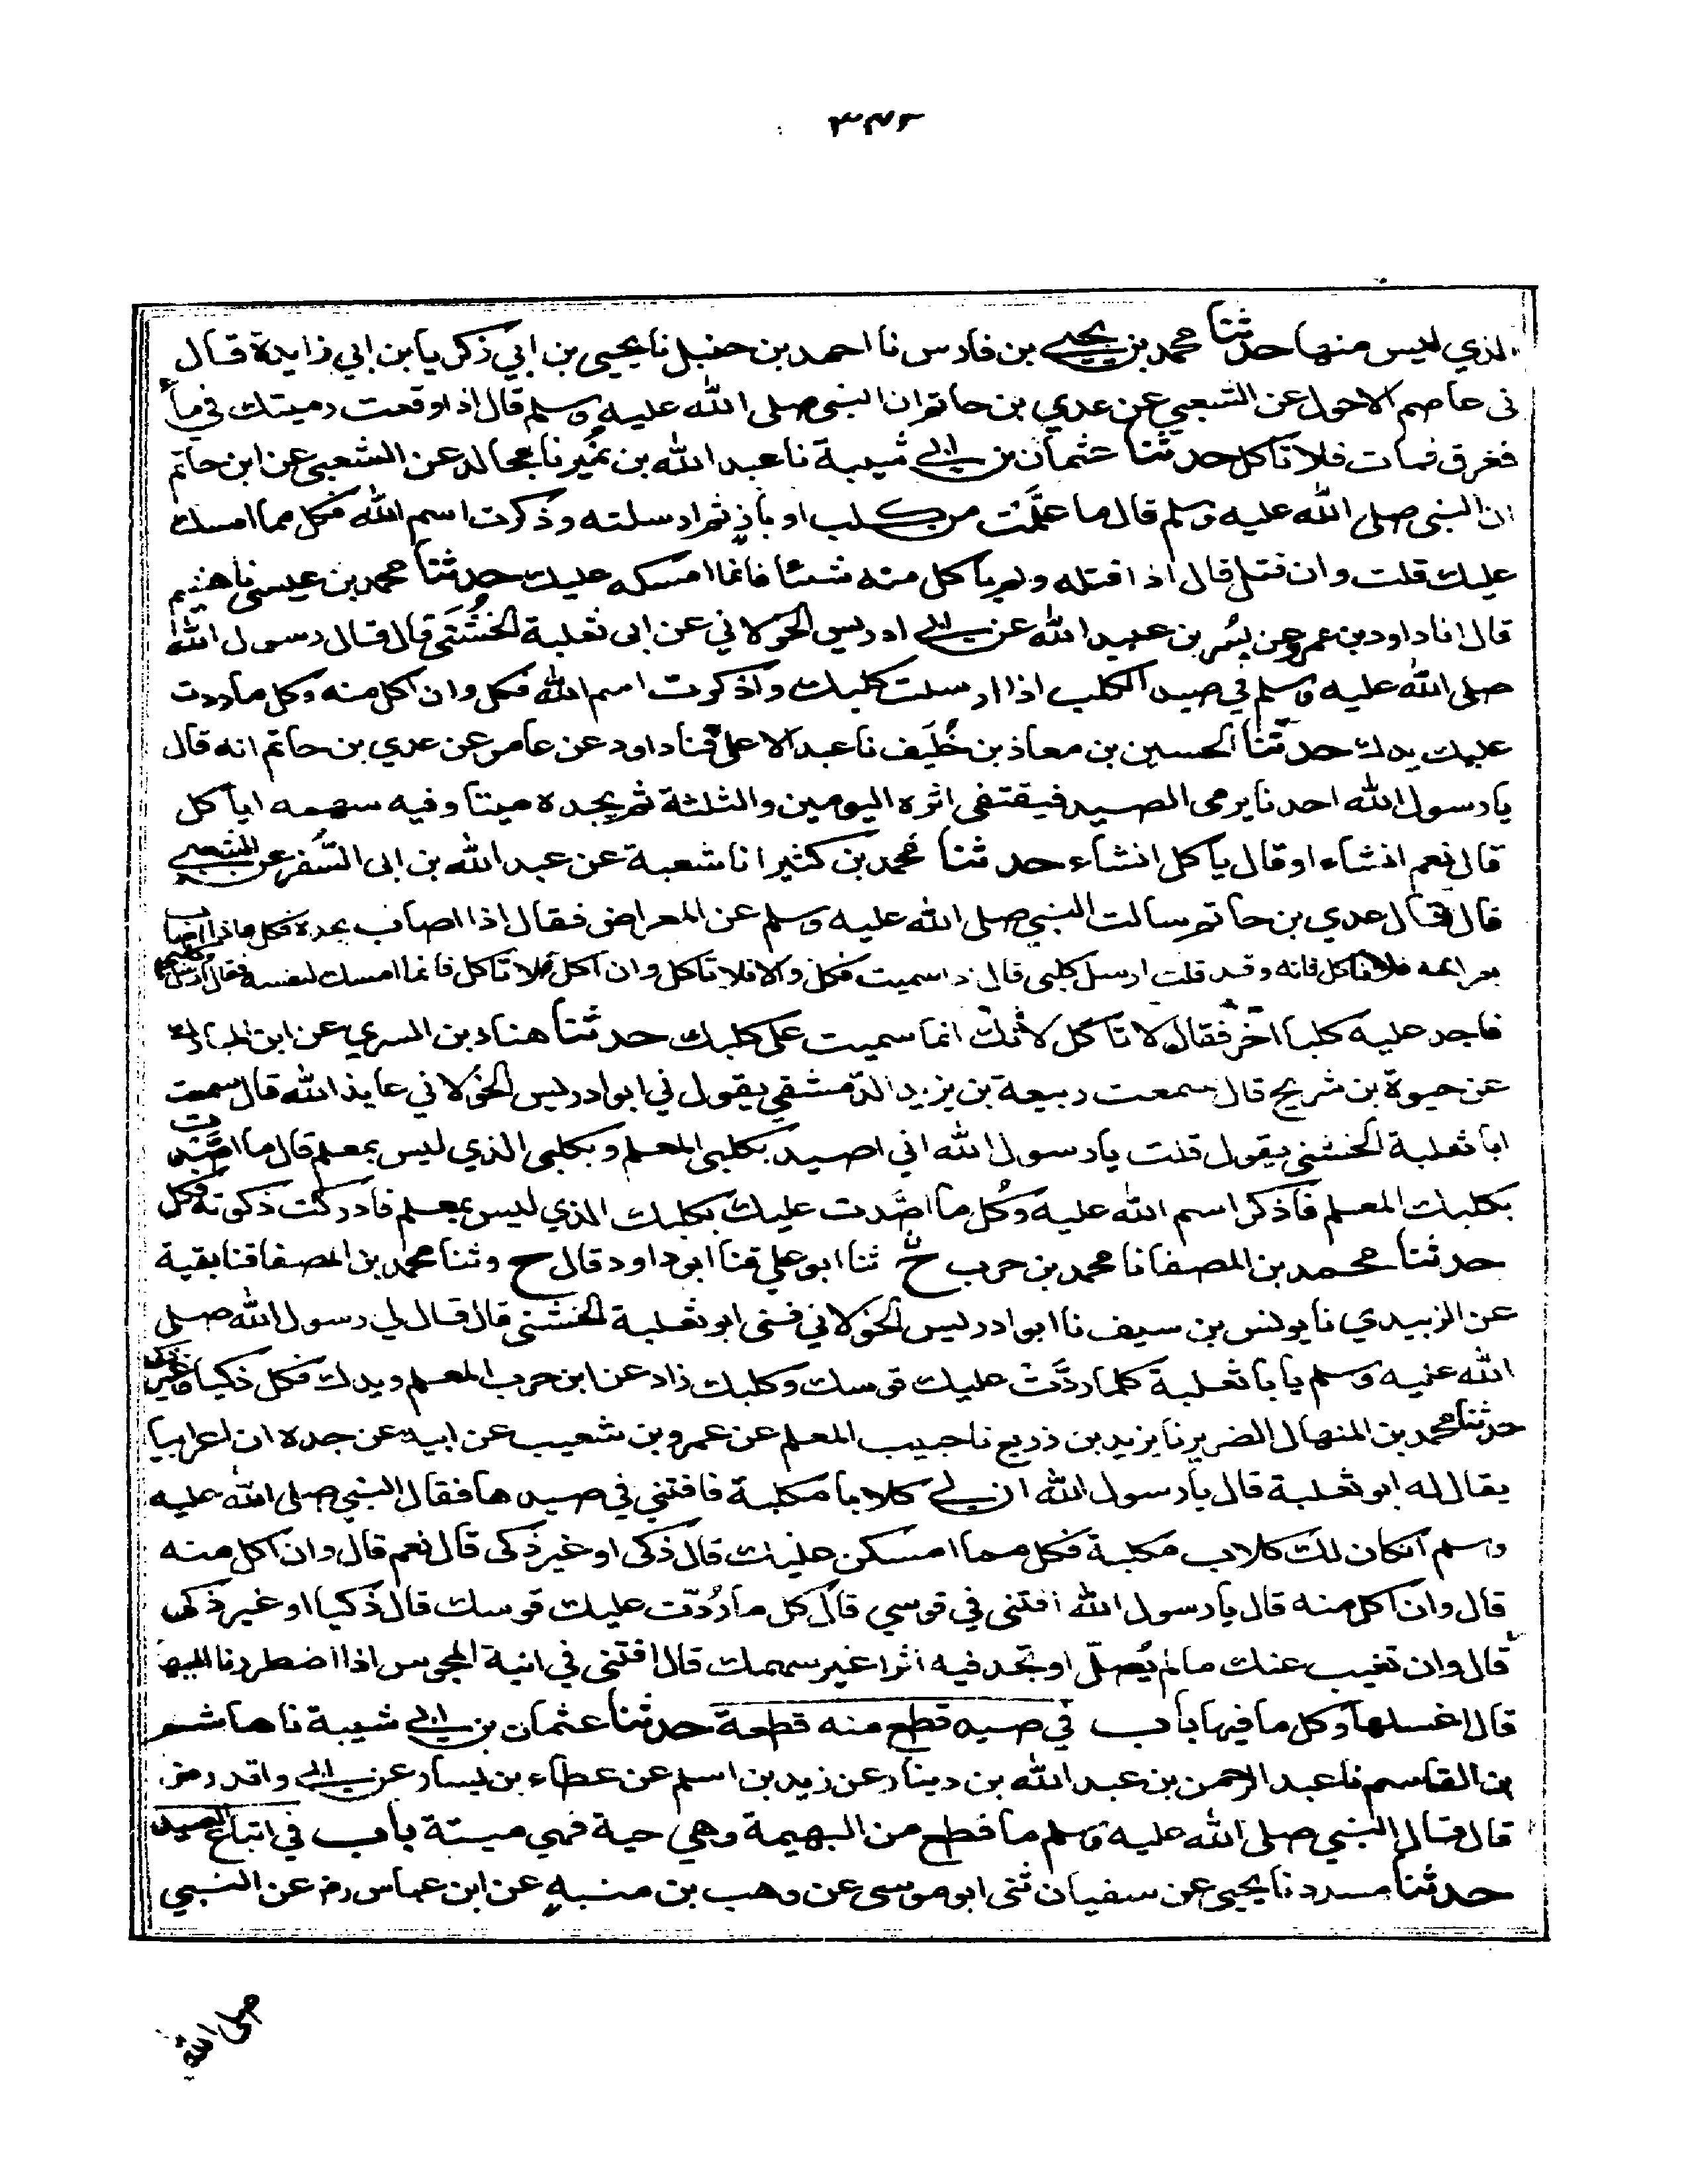 ٣٤٦
الذي ليس منها حدثنا محمد بن يحيى بن فارس نا احمد بن حنبل نا يحيى بن ابي زكريا بن ابي زايدة قال
نى عاصم الاحول عن الشعبي عن عدي بن حاتم ان النبي صلى الله عليه وسلم قال اذا وقعت رميتك في ماء
فغرق فمات فلا تاكل حدثنا عثمان بن ابي شيبة نا عبد الله بن نُمير نا مجالد عن الشعبي عن ابن حاتم
ان النبي صلى الله عليه وسلم قال ما علَّمت من كلب او باز ثم ارسلته وذكرت اسم الله فكل مما امسك
عليك قلت وان قتل قال اذا قتله ولم ياكل منه شيئا فانما امسكه عليك حدثنا محمد بن عيسى نا هشيم
قال انا داود بن عمرو عن بسر بن عبيد الله عن ابي ادريس الخولاني عن ابى ثعلبة الخُشَنى قال قال رسول الله
صلى الله عليه وسلم في صيد الكلب اذا ارسلت كلبك واذكرت اسم الله فكل وان اكل منه وكل ما ردت
عليك يدك حدثنا الحسين بن معاذ بن خُلَيف نا عبد الاعلى قثنا داود عن عامر عن عدي بن حاتم انه قال
يا رسول الله احدنا يرمى الصيد فيقتفى اثره اليومين والثلثة ثم يجده ميتا وفيه سهمه اياكل
قال نعم انشاء او قال ياكل انشاء حدثنا محمد بن كثير انا شعبة عن عبد الله بن ابى السَّفر عن الشعبي
قال قال عدي بن حاتم سالت النبي صلى الله عليه وسلم عن المعراض فقال اذا اصاب بحده فكل واذا اصاب
بعرضه فلا تاكل فانه وقيد قلت ارسل كلبى قال اذا سميت فكل والا فلا تاكل وان اكل فلا تاكل فانما امسك لنفسه فقال ارسل كلبى
فاجد عليه كلبا اخر فقال لا تاكل لانك انما سميت على كلبك حدثنا هناد بن السري عن ابن المبارك
عن حيوة بن شريح قال سمعت ربيعة بن يزيد الدمشقي يقول ني ابو ادريس الخولاني عايذ الله قال سمعت
ابا ثعلبة الخشني يقول قلت يا رسول الله اني اصيد بكلبى المعلم وبكلبى الذي ليس بمعلم قال ما اصَّدت
بكلبك المعلم فاذكر اسم الله عليه وكُل ما اصَّدت عليك بكلبك الذي ليس بمعلم فادركت ذكوته فكل
حدثنا محمد بن المصفا نا محمد بن حرب ح ثنا ابو علي قثنا ابو داود قال ح وثنا محمد بن المصفا قثنا بقية
عن الزبيدي نا يونس بن سيف نا ابو ادريس الخولاني قثنى ابو ثعلبة الخشنى قال قال لي رسول الله صلى
الله عليه وسلم يا با ثعلبة كلما ردَّت عليك قوسك وكلبك زاد عن ابن حرب المعلم ويدك فكل ذكيا وغير ذكى
حدثنا محمد بن المنهال الضرير نا يزيد بن زريع نا حبيب المعلم عن عمرو بن شعيب عن ابيه عن جده ان اعرابيا
يقال له ابو ثعلبة قال يا رسول الله ان لي كلابا مكلبة فافتني في صيدها فقال النبي صلى الله عليه
وسلم انكان لك كلاب مكلبة فكل مما امسكن عليك قال ذكى او غير ذكى قال نعم قال وان اكل منه
قال وان اكل منه قال يا رسول الله افتنى في قوسي قال كل ما رُدّت عليك قوسك قال ذكيا او غير ذكى
قال وان تغيب عنك مالم يُصلّ او تجد فيه اثرا غير سهمك قال افتنى في انية المجوس اذا اضطررنا اليها
قال اغسلها وكل ما فيها باب في صيد قطع منه قطعة حدثنا عثمان بن ابي شيبة نا هاشم
بن القاسم نا عبد الرحمن بن عبد الله بن دينار عن زيد بن اسلم عن عطاء بن يسار عن ابي واقد رض
قال قال النبي صلى الله عليه وسلم ما قطع من البهيمة وهي حية فهي ميتة باب في اتباع الصيد
حدثنا مسدد نا يحيى عن سفيان ثنى ابو موسى عن وهب بن منبه عن ابن عباس رض عن النبي
صلى الله